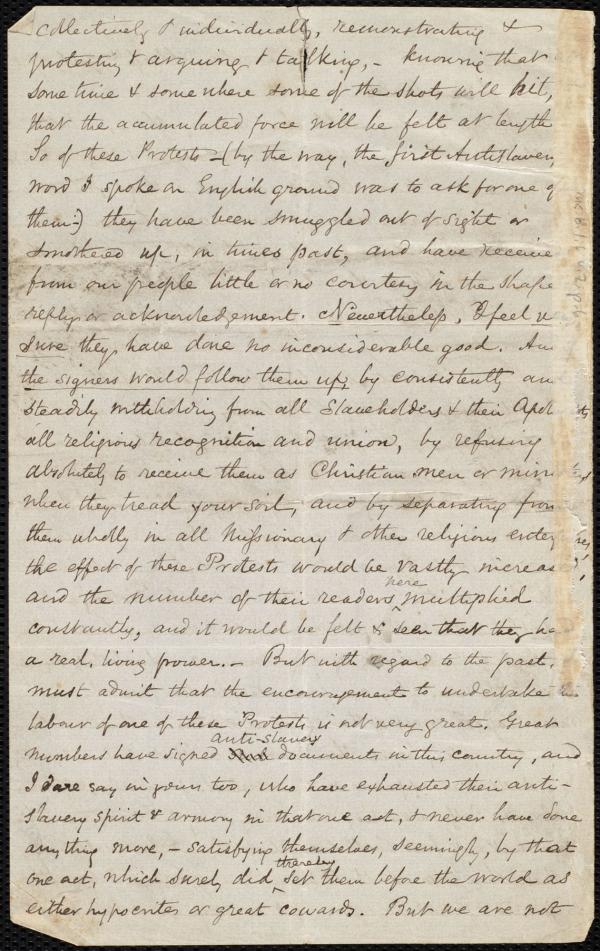 collectively & individually, remonstrating &
protesting & arguing & talking, - knowing that
some time & somewhere some of the shots will hit,
that the accumulated force will be felt at length
So of these Protests - (by the way, the first Antislavery
word I spoke on English ground was to ask for one of
them:) they have been smuggled out of sight or
smothered up, in times past, and have receive
from our people little or no courtesy in the shape
reply or acknowledgement. Nevertheless, I feel
sure they have done no inconsiderable good. An
the signers would follow them up, by consistently an
steadily withholding from all Slaveholders & their Apol
all religious recognition and union, by refusing
absolutely to receive them as Christian men or min
when they tread your soil, and by separating from
them wholly in all Missionary & other religious enterp
the effect of these Protests would be vastly increased,
and the number of their readers here multiplied
constantly, and it would be felt & seen that they had
a real, living power. - But with regard to the past,
must admit that the encouragement to undertake
labour of one of these Protests is not very great. Great
numbers have signed anti-slavery documents in this country, and
I dare say in yours too, who have exhausted their anti-
slavery spirit & armory in that one act, & never have done
anything more, - satisfying themselves, seemingly, by that
one act, which surely did thereby set them before the world as
either hypocrites or great cowards. But we are not